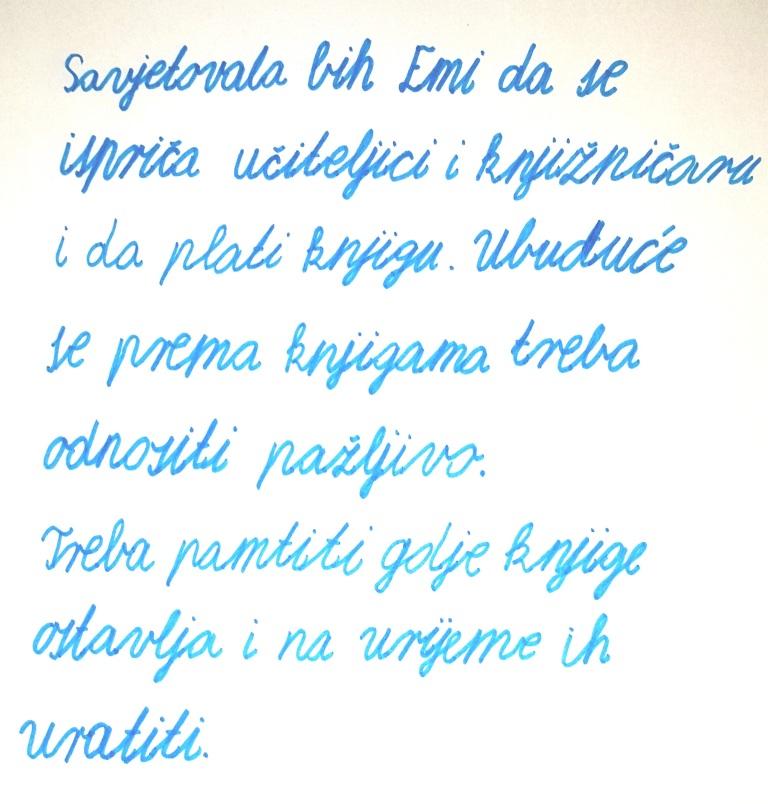 Savjetovala bih Emi da se
ispriča učiteljici i knjižničaru
i da plati knjigu. Ubuduće
se prema knjigama treba
odnositi pažljivo.
Treba pamtiti gdje knjige
ostavlja i na vrijeme ih
vratiti.